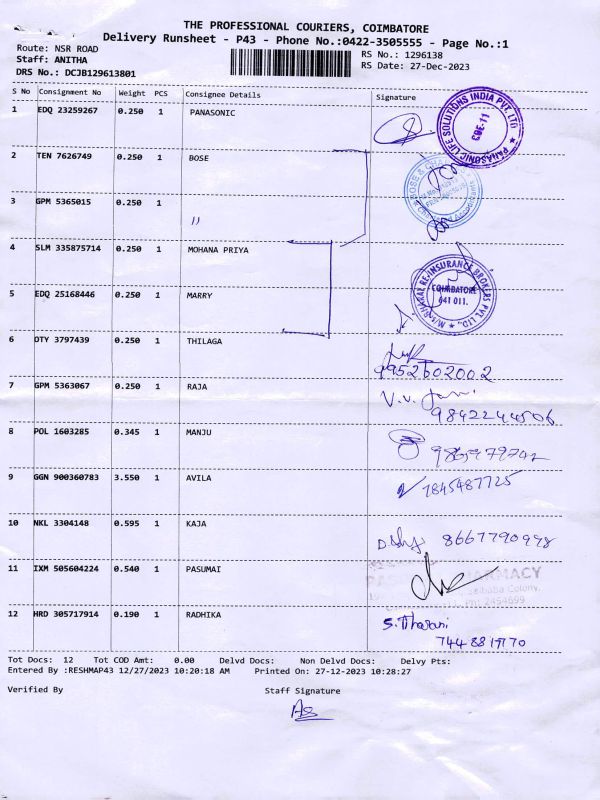 THE PROFESSIONAL COURIERS, COIMBATORE
Delivery Runsheet - P43 - Phone No.:0422-3505555 - Page No.:1
Route: NSR ROAD
RS No.: 1296138
Staff: ANITHA
RS Date: 27-Dec-2023
DRS No.: DCJB129613801
S No Consignment No Weight PCS Consignee Details Signature
1 EDQ 23259267 0.250 1 PANASONIC
PANASONIC LIFE SOLUTIONS INDIA PVT. LTD.
CBE-11
2 TEN 7626749 0.250 1 BOSE
3 GPM 5365015 0.250 1 "
4 SLM 335875714 0.250 1 MOHANA PRIYA
M/s. BHARAT RE-INSURANCE BROKERS PVT. LTD.,
COIMBATORE
641 011.
5 EDQ 25168446 0.250 1 MARRY
6 OTY 3797439 0.250 1 THILAGA
9952602002
7 GPM 5363067 0.250 1 RAJA
9842244506
8 POL 1603285 0.345 1 MANJU
9 GGN 900360783 3.550 1 AVILA
10 NKL 3304148 0.595 1 KAJA
8667790998
11 IXM 505604224 0.540 1 PASUMAI
PHARMACY
Saibaba Colony,
2454699
12 HRD 305717914 0.190 1 RADHIKA
S. Tharani
Tot Docs: 12 Tot COD Amt: 0.00 Delvd Docs: Non Delvd Docs: Delvy Pts:
Entered By :RESHMAP43 12/27/2023 10:20:18 AM Printed On: 27-12-2023 10:28:27
Verified By Staff Signature